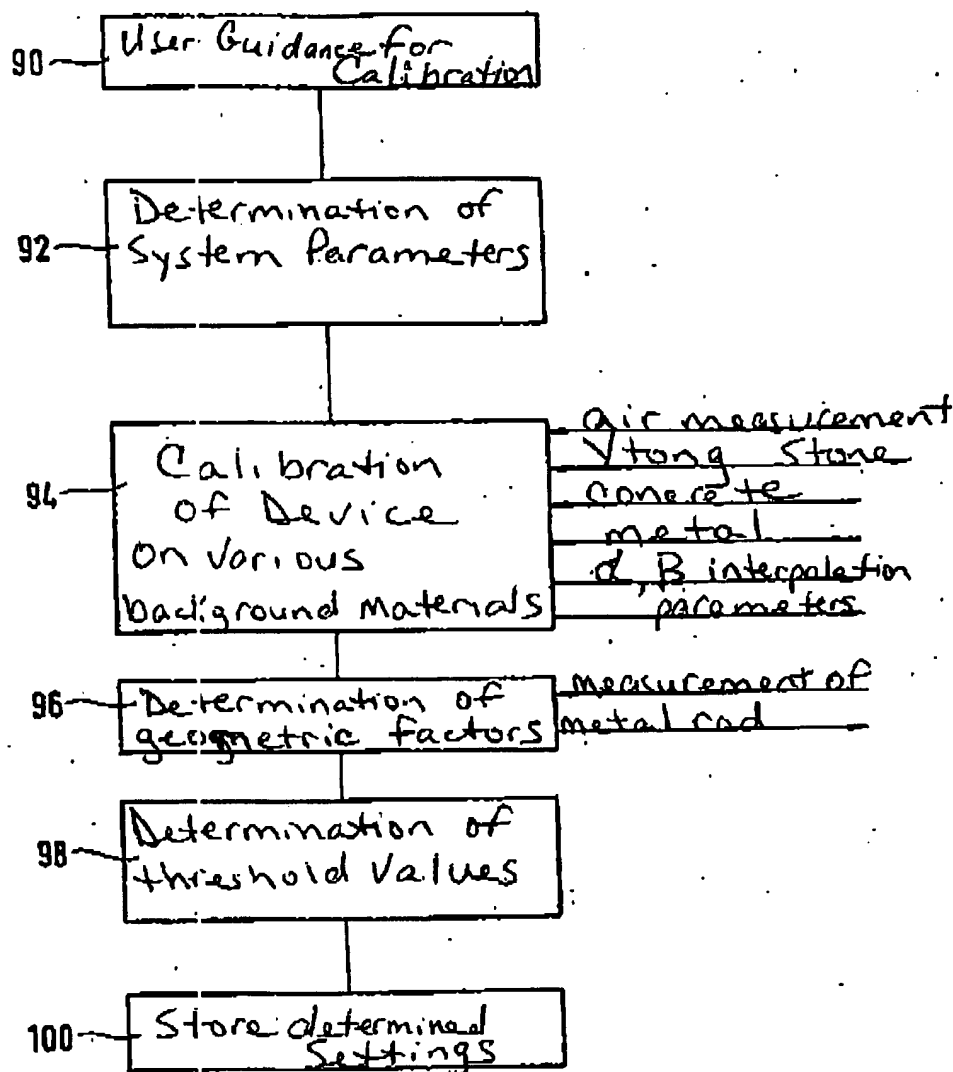 90
User Guidance for
Calibration
92
Determination of
System Parameters
94
Calibration
of Device
on various
background materials
air measurement
Ytong Stone
concrete
metal
α, B interpolation
parameters
96
Determination of
geometric factors
measurement of
metal rod
98
Determination of
threshold values
100
Store determined
Settings